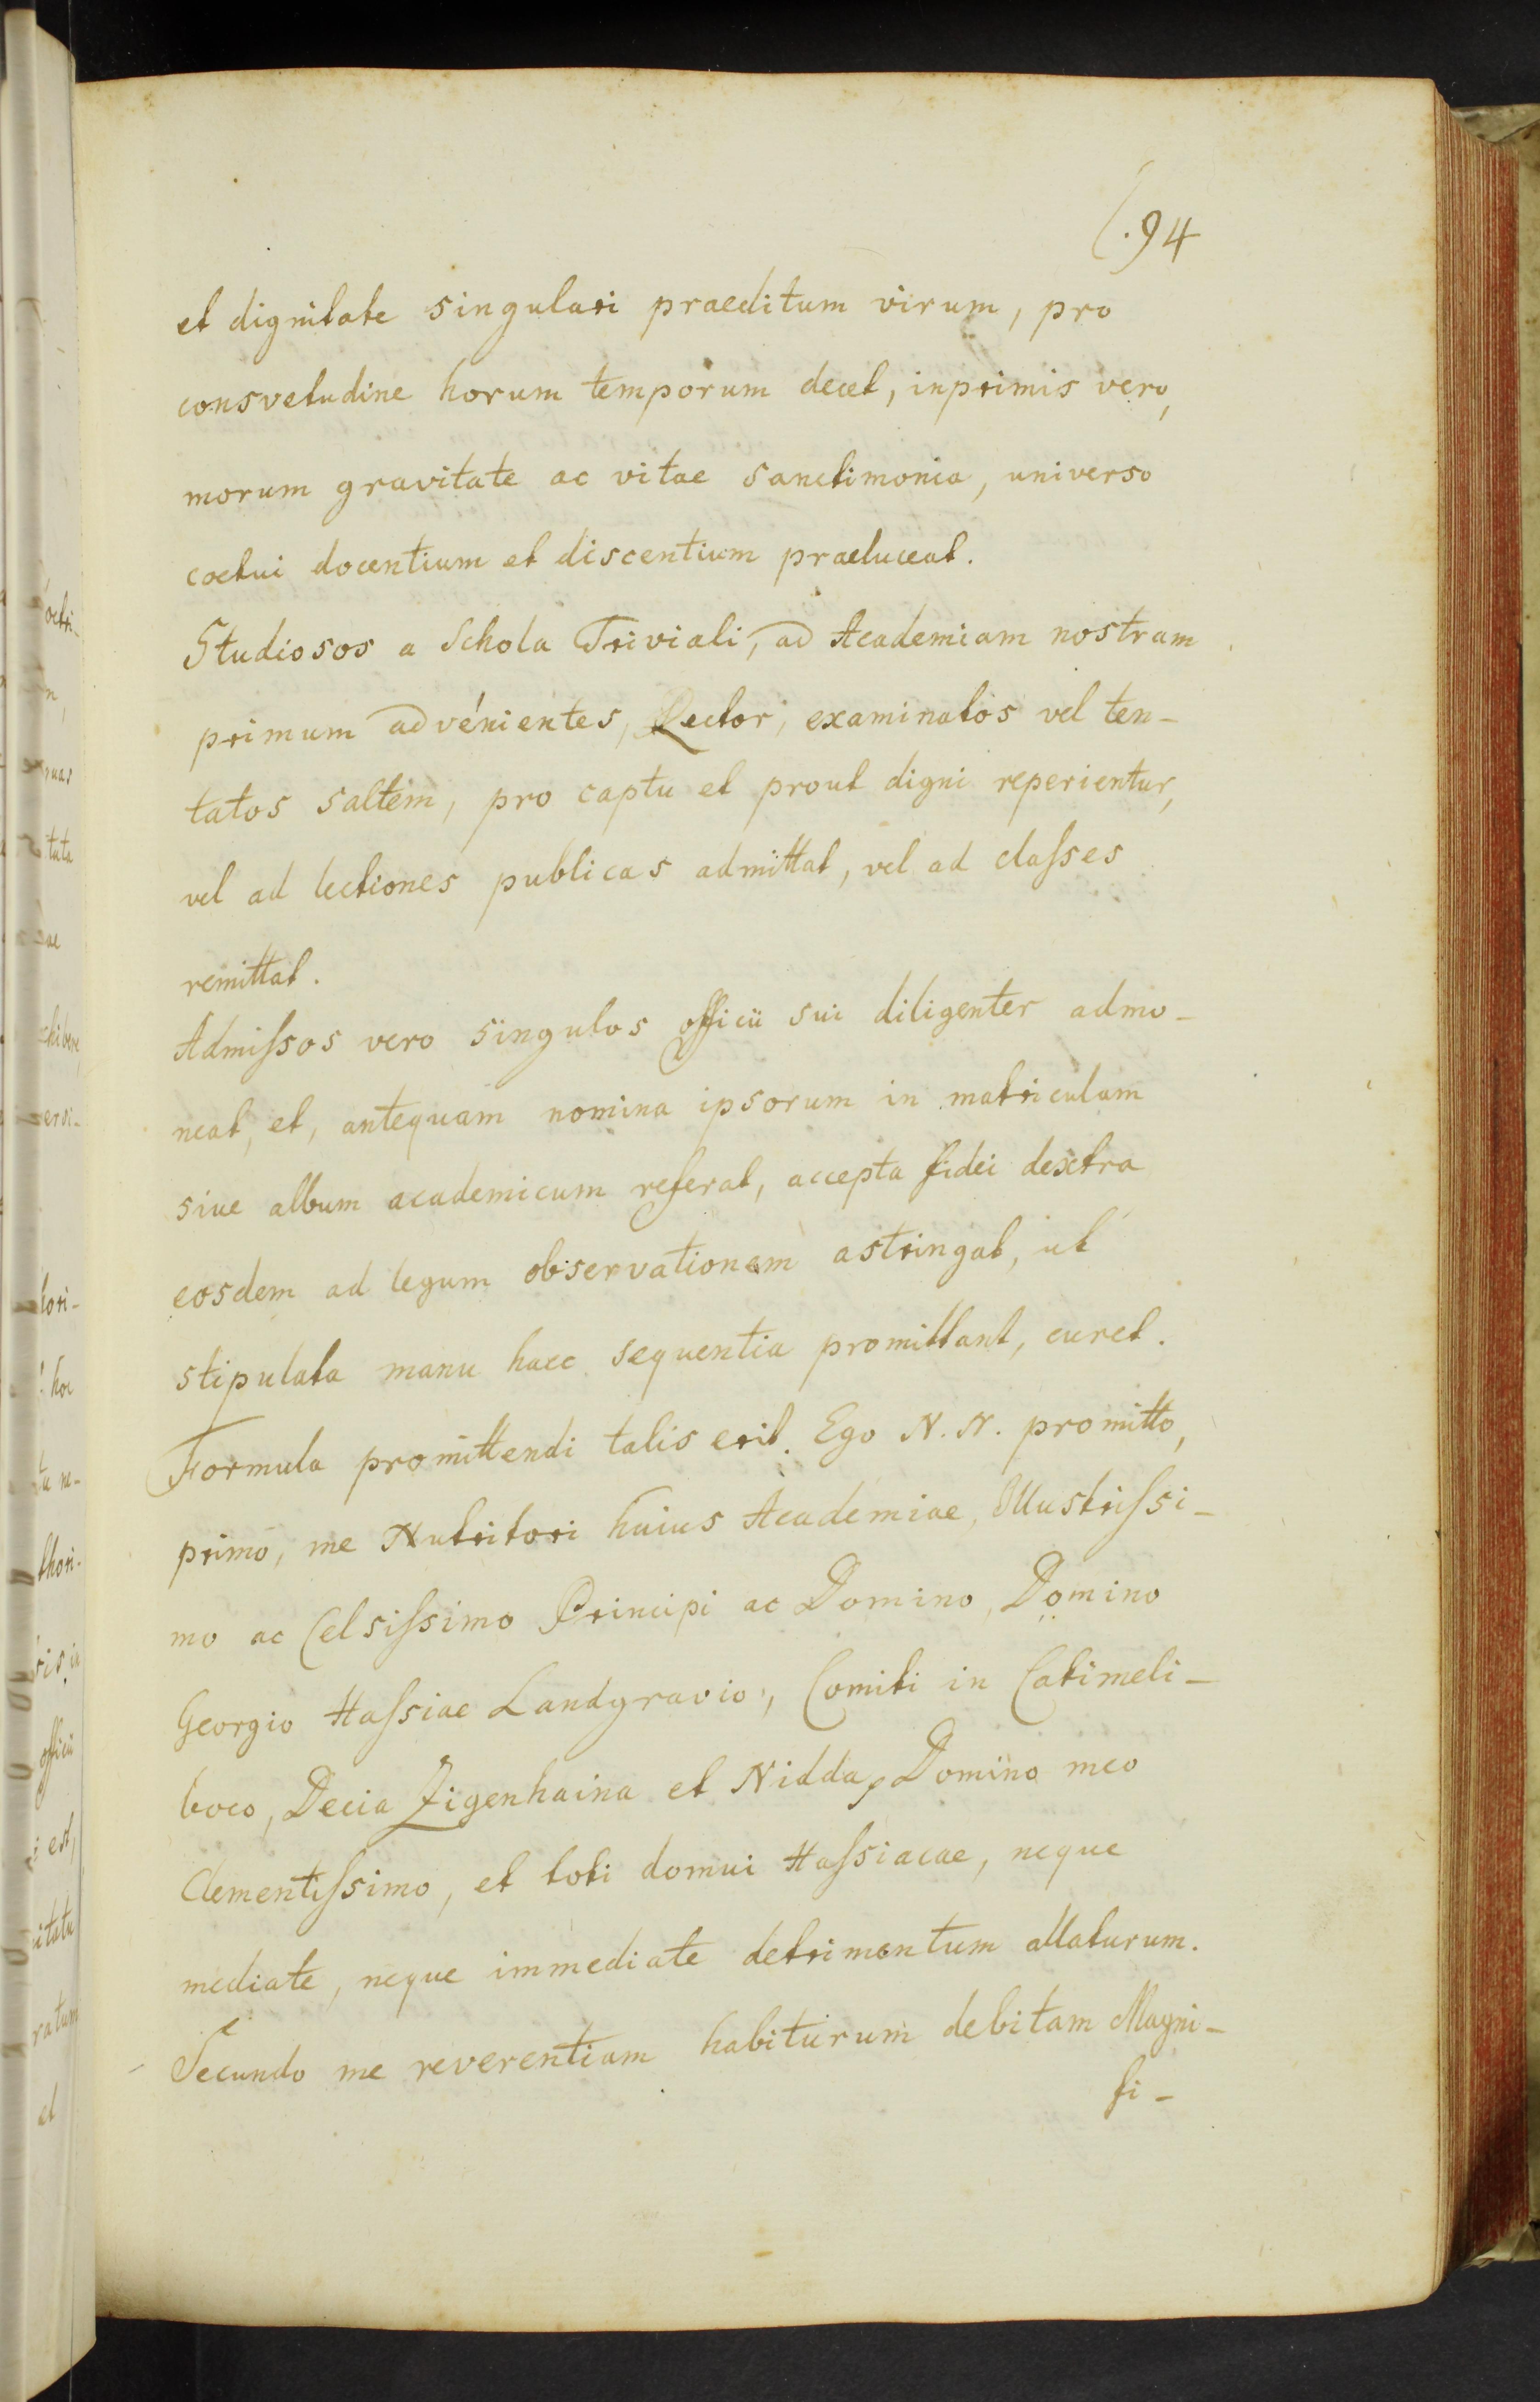 (.94
et dignitate singulari praeditum virum, pro
consvetudine horum temporum decet, inprimis vero,
morum gravitate ac vitae sanctimonia, universo
coetui docentium et discentium praeluceat.
Studiosos a Schola Triviali, ad Academiam nostram
primum advenientes, Rector, examinatos vel ten-
tatos saltem, pro captu et prout digni reperientur,
vel ad lectiones publicas admittat, vel ad claſses
remittat.
Admiſsos vero singulos officii sui diligenter admo-
neat, et, antequam nomina ipsorum in matriculam
sive album academicum referat, accepta fidei dextra
eosdem ad legum observationem astringat, ut
stipulata manu haec sequentia promittant, curet.
Formula promittendi talis erit. Ego N. N. promitto,
primo, me Nutritori huius Academiae, Illustriſsi-
mo ac Celsiſsimo Principi ac Domino, Domino
Georgio Haſsiae Landgravio, Comiti in Catimeli-
boco, Decia Zigenhaina et Nidda, Domino meo
Clementiſsimo, et toti domui Haſsiacae, neque
mediate, neque immediate detrimentum allaturum.
Secundo me reverentiam habiturum debitam Magni-
fi-